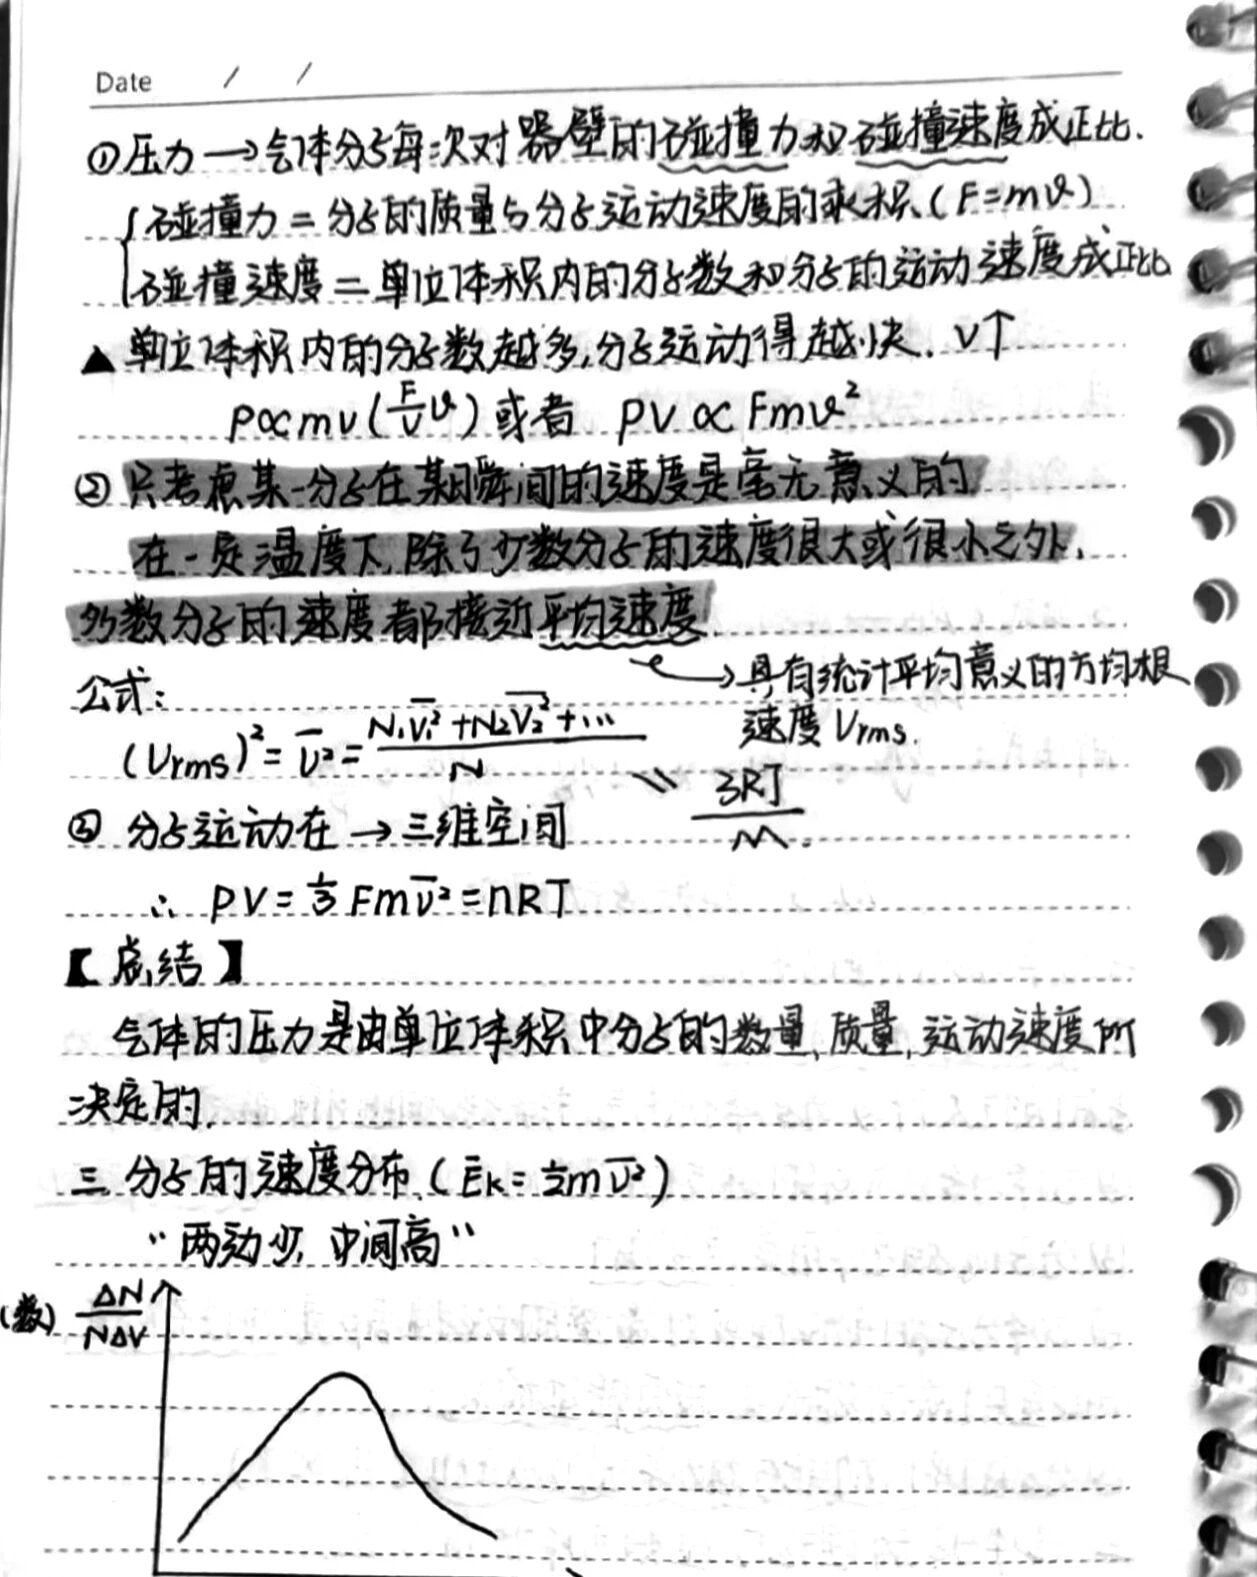 Date / /
①压力→气体分子每次对器壁的碰撞力和碰撞速度成正比.
碰撞力=分子的质量与分子运动速度的乘积(F=mv)
碰撞速度=单位体积内的分子数和分子的运动速度成正比
▲单位体积内的分子数越多,分子运动得越快. V↑
P∝mv(F/V v)或者 PV∝Fmv²
②只考虑某一分子在某瞬间的速度是毫无意义的
在一定温度下,除了少数分子的速度很大或很小之外,
多数分子的速度都接近平均速度
→具有统计平均意义的方均根
速度Vrms.
公式:
(Vrms)²=v̅²=(N₁v̅₁²+N₂v̅₂²+…)/N
= 3RT/M.
③ 分子运动在→三维空间
∴ PV=⅓Fmv̅²=nRT
【总结】
气体的压力是由单位体积中分子的数量,质量,运动速度所
决定的.
三.分子的速度分布(E̅k=½mv̅²)
“两边少,中间高”
(数) ΔN/NΔV